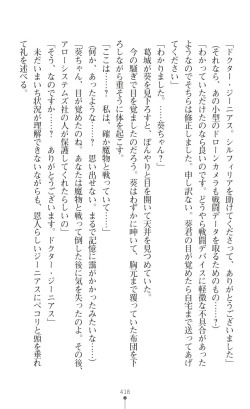 「ドクター・ジーニアス、シルフィリアを助けてくださって、ありがとうございます」
（それなら、あの小型のドローンカメラも戦闘データを取るためのもの……）
「わかっていただけたのなら良いのです。どうやら戦闘デバイスに軽微な不具合があった
ようなのでそちらは修正しました。申し訳ない。葵君の目が覚めたら自宅まで送って
てください」
「わかりました。……葵ちゃん？」
葛城が葵を見下ろすと、ぼんやりと目を開いて天井を見つめていた。
今の騒ぎで目を覚ましたのだろう。葵はわずかに呻き、胸元まで覆っていた布団を下
ろしながら重そうに体を起こす。
「ここは……？　私は、確か魔物と戦っていて……」
（何か、あったような……？　思い出せない。まるで記憶に靄がかかったみたいな……）
「葵ちゃん、目が覚めたのね。あなたは魔物と戦って倒した後に気を失ったのよ。その後、
アローシステムズ社の人が保護してくれたらしいの」
「そう、なのですか……？　ありがとうございます。ドクター・ジーニアス」
未だいまいち状況が理解できないながらも、恩人らしいジーニアスにペコリと頭を垂れ
て礼を述べる。
418